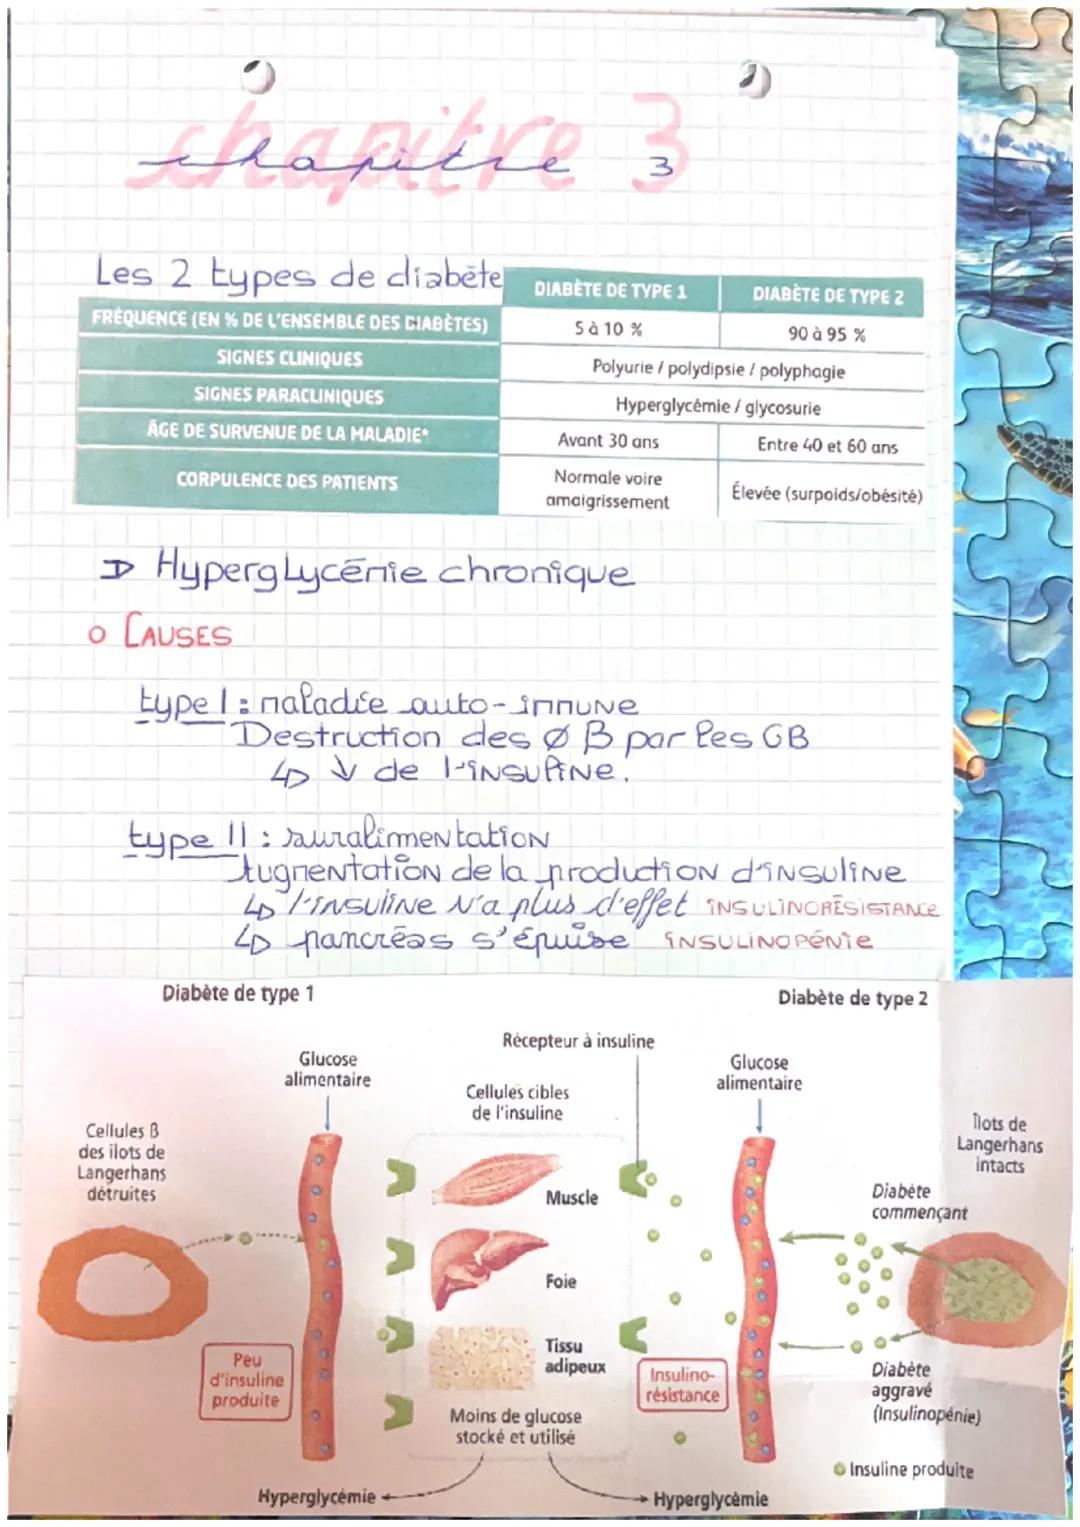 chapitre 3
Les 2 types de diabète
DIABÈTE DE TYPE 1 DIABÈTE DE TYPE 2
FRÉQUENCE (EN % DE L'ENSEMBLE DES DIABÈTES) 5 à 10 % 90 à 95 %
SIGNES CLINIQUES Polyurie / polydipsie / polyphagie
SIGNES PARACLINIQUES Hyperglycémie / glycosurie
ÂGE DE SURVENUE DE LA MALADIE* Avant 30 ans Entre 40 et 60 ans
CORPULENCE DES PATIENTS Normale voire amaigrissement Élevée (surpoids/obésité)
Hyperglycémie chronique
CAUSES
type I : maladie auto-immune
Destruction des ø B par les GB
↳ ↓ de l'insuline.
type II : suralimentation
Augmentation de la production d'insuline
↳ l'insuline n'a plus d'effet INSULINORÉSISTANCE
↳ pancréas s'épuise INSULINOPÉNIE
Diabète de type 1
Diabète de type 2
Récepteur à insuline
Glucose
alimentaire
Cellules cibles
de l'insuline
Glucose
alimentaire
Cellules β
des îlots de
Langerhans
détruites
Îlots de
Langerhans
intacts
Muscle
Diabète
commençant
Foie
Tissu
adipeux
Peu
d'insuline
produite
Insulino-
résistance
Diabète
aggravé
(Insulinopénie)
Moins de glucose
stocké et utilisé
Insuline produite
Hyperglycémie
Hyperglycémie